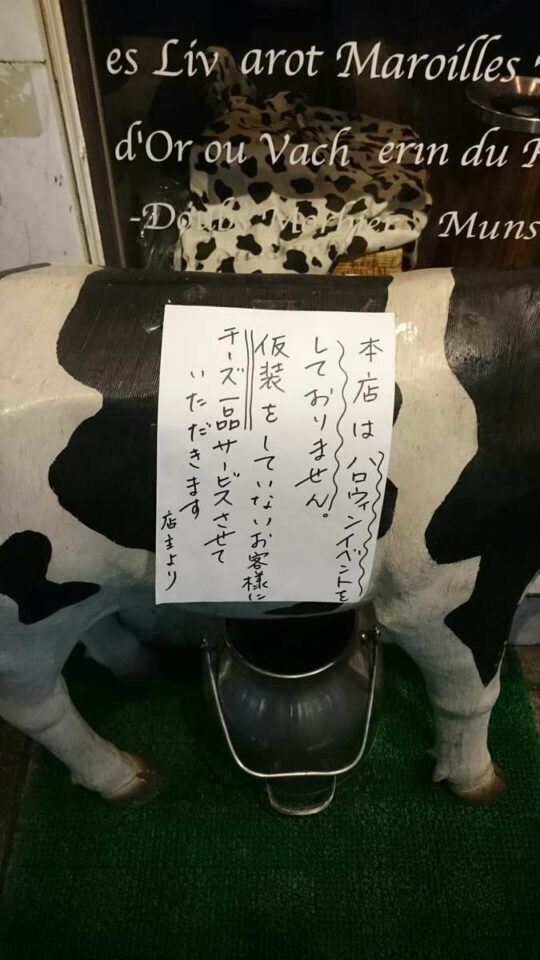 es Liv arot Maroilles
d'Or ou Vach erin du
Muns
本店はハロウィンイベントを
しておりません。
仮装をしていないお客様に
チーズ一品サービスさせて
いただきます
店主より